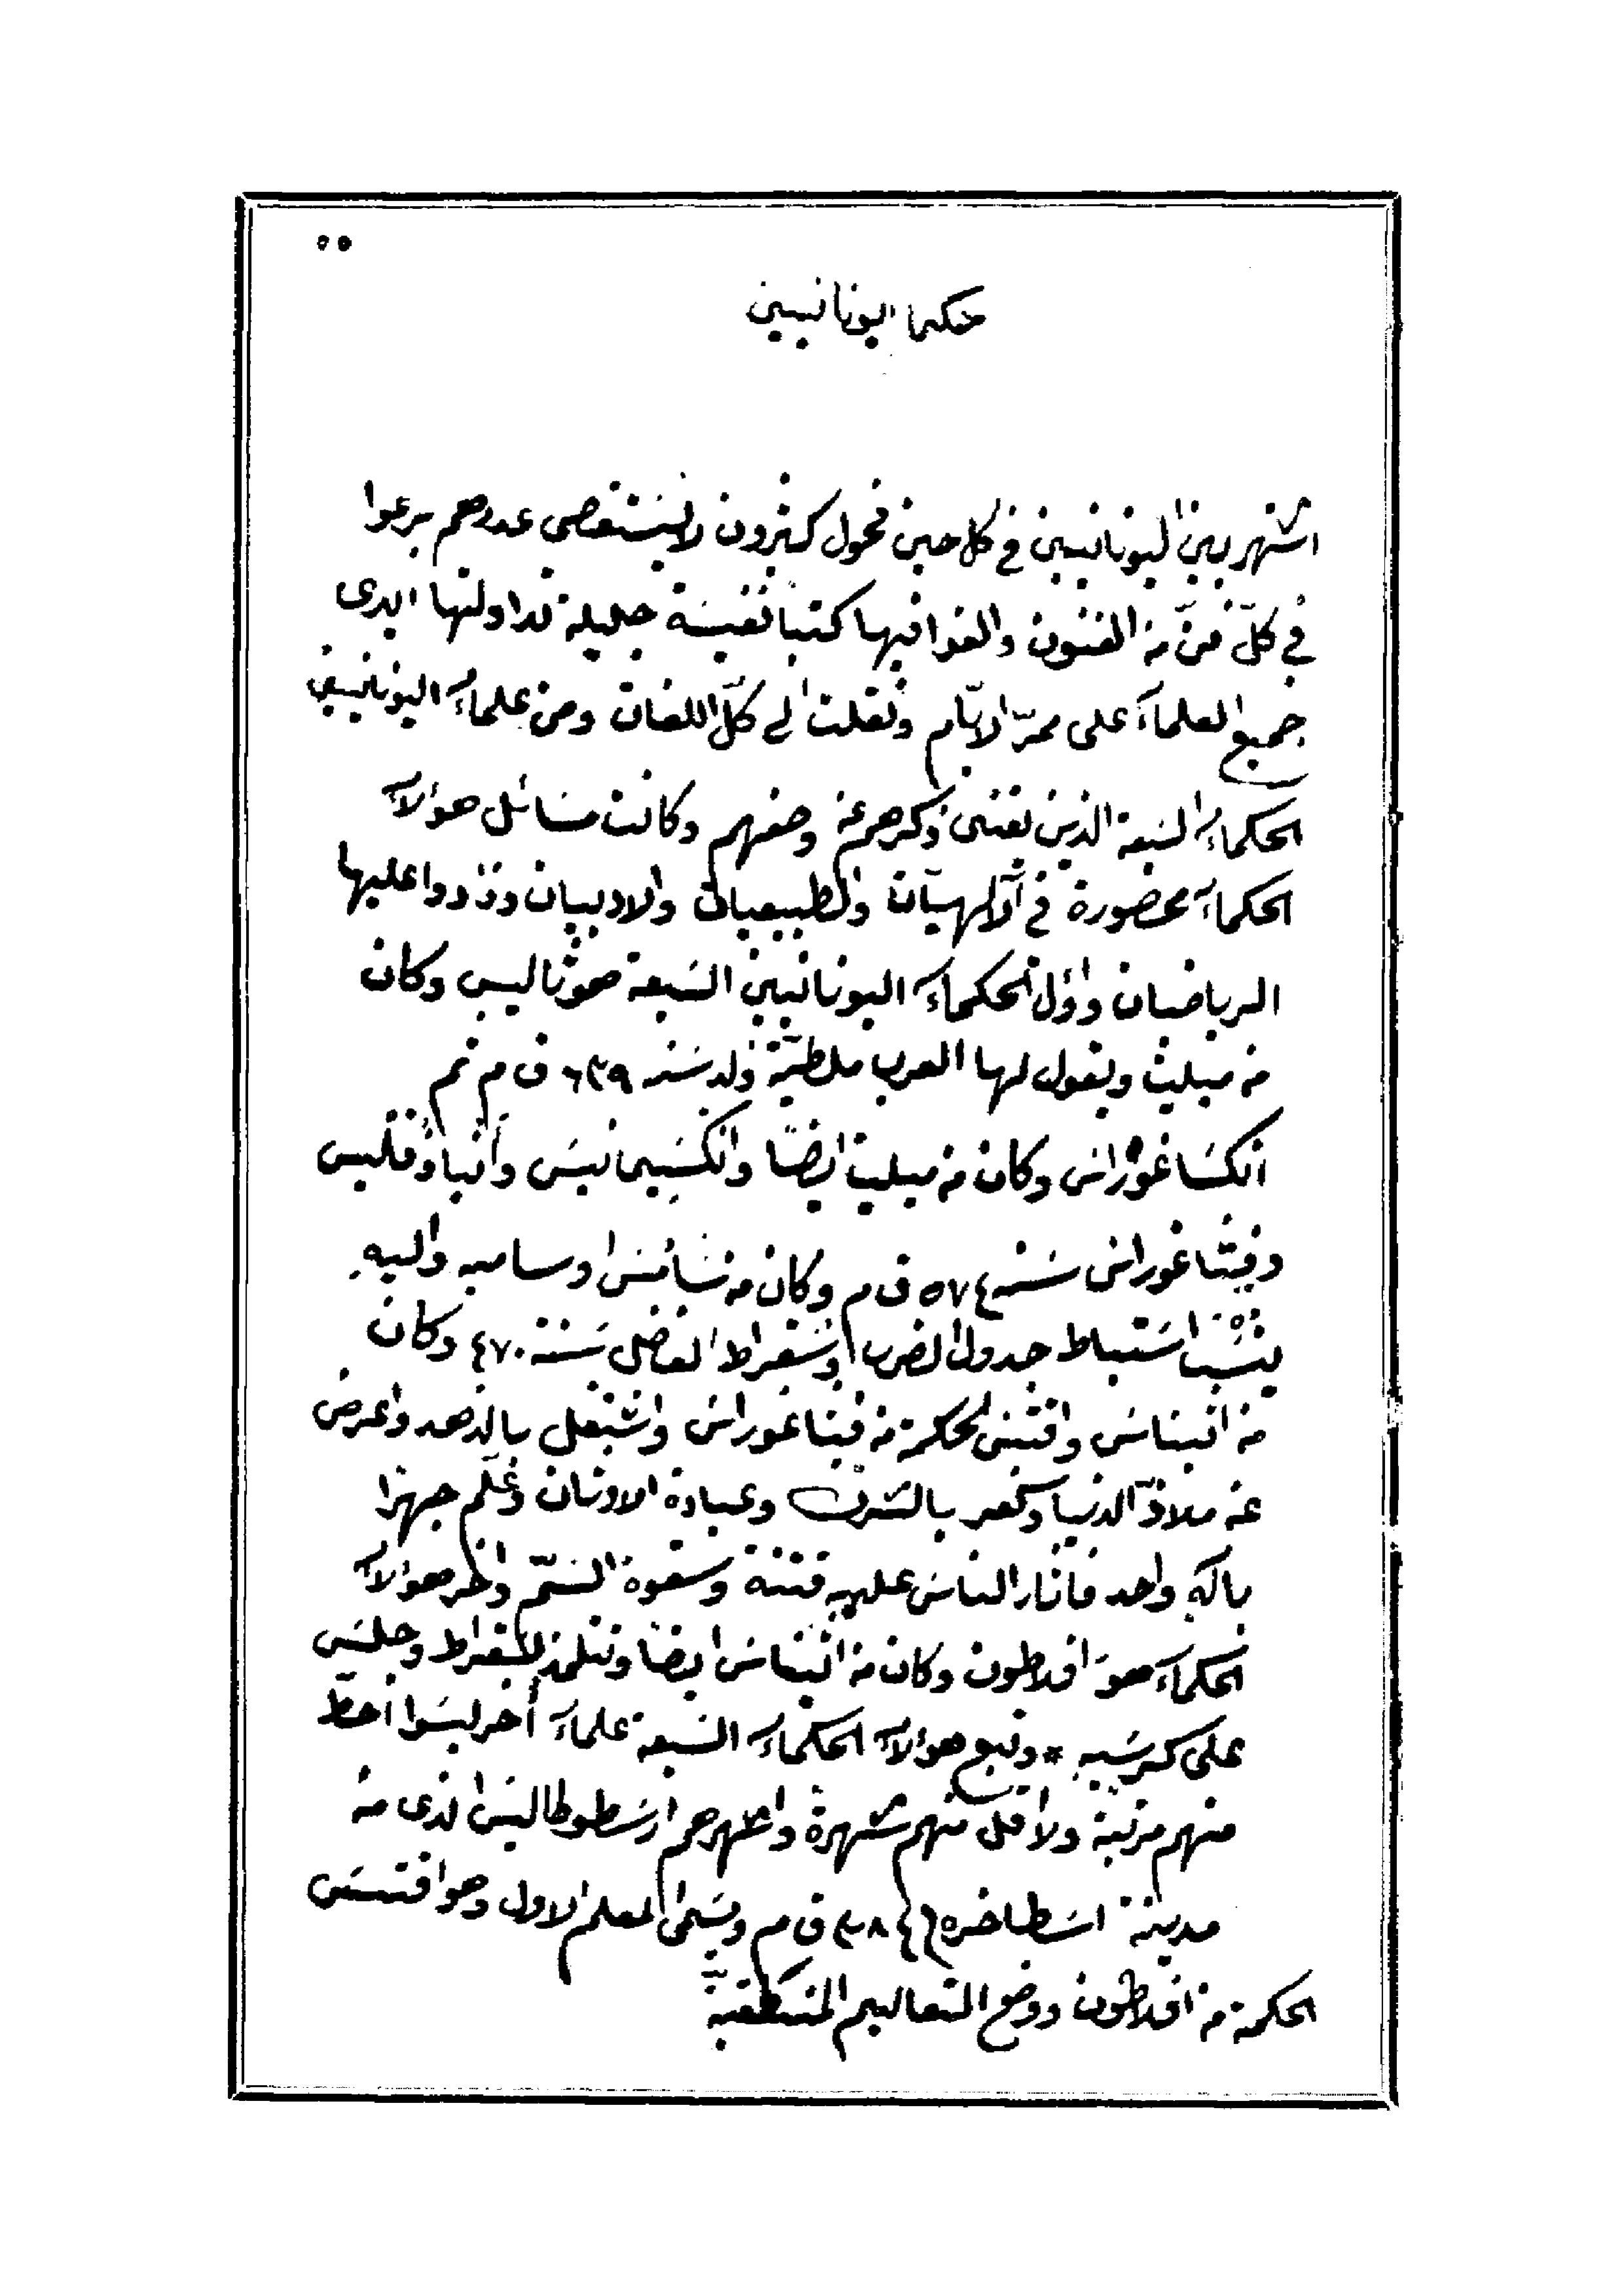 ٥٥
حكما اليونانيين
اشتهر بين اليونانيين في كل حين فحول كثيرون لا يستقصى عددهم برعوا
في كلّ فنّ من الفنون والفوا فيها كتباً نفيسة جليلة تداولتها ايدى
جميع العلماء على ممرّ الايّام ونقلت الى كلّ اللغات ومن علماء اليونانيين
الحكماء السبعة الذين يغنى ذكرهم عن وصفهم وكانت مسائل هؤلاء
الحكماء محصورة في الآلهيّات والطبيعيات والادبيات وزادوا عليها
الرياضيات واوّل الحكماء اليونانيين السبعة هو ثاليس وكان
من ميليث ويقول لها العرب ملطيّة ولد سنه ٦٣٩ ق م ثم
انكساغوراس وكان من ميليت ايضاً وانكسيمانيس وأنباذوقليس
وفيثاغوراس سنه ٥٧٤ ق م وكان من سامس او ساميه واليه
ينسب استنباط جدول الضرب وسقراط الفاضل سنة ٤٧٠ وكان
من اثيناس واقتبس الحكمة من فيثاغوراس واشتغل بالزهد واعرض
عن ملاذّ الدنيا وكفر بالشرك وعبادة الاوثان وعلّم جهراً
باله واحد فاثار الناس عليه فتنة وسقوه السّم واخر هؤلاء
الحكماء هو افلاطون وكان من اثيناس ايضاً وتتلمذ لسقراط وجلس
على كرسيه * وتبع هؤلاء الحكماء السبعة علماء أخر ليسوا أحطّ
منهم مرتبة ولا اقل منهم شهرة واشهرهم ارسطوطاليس الذى من
مدينة اسطاخره (٣٨٤ ق م ويسمى المعلم الاول وهو اقتبس
الحكمة من افلاطون ووضع التعاليم المنطقيّة